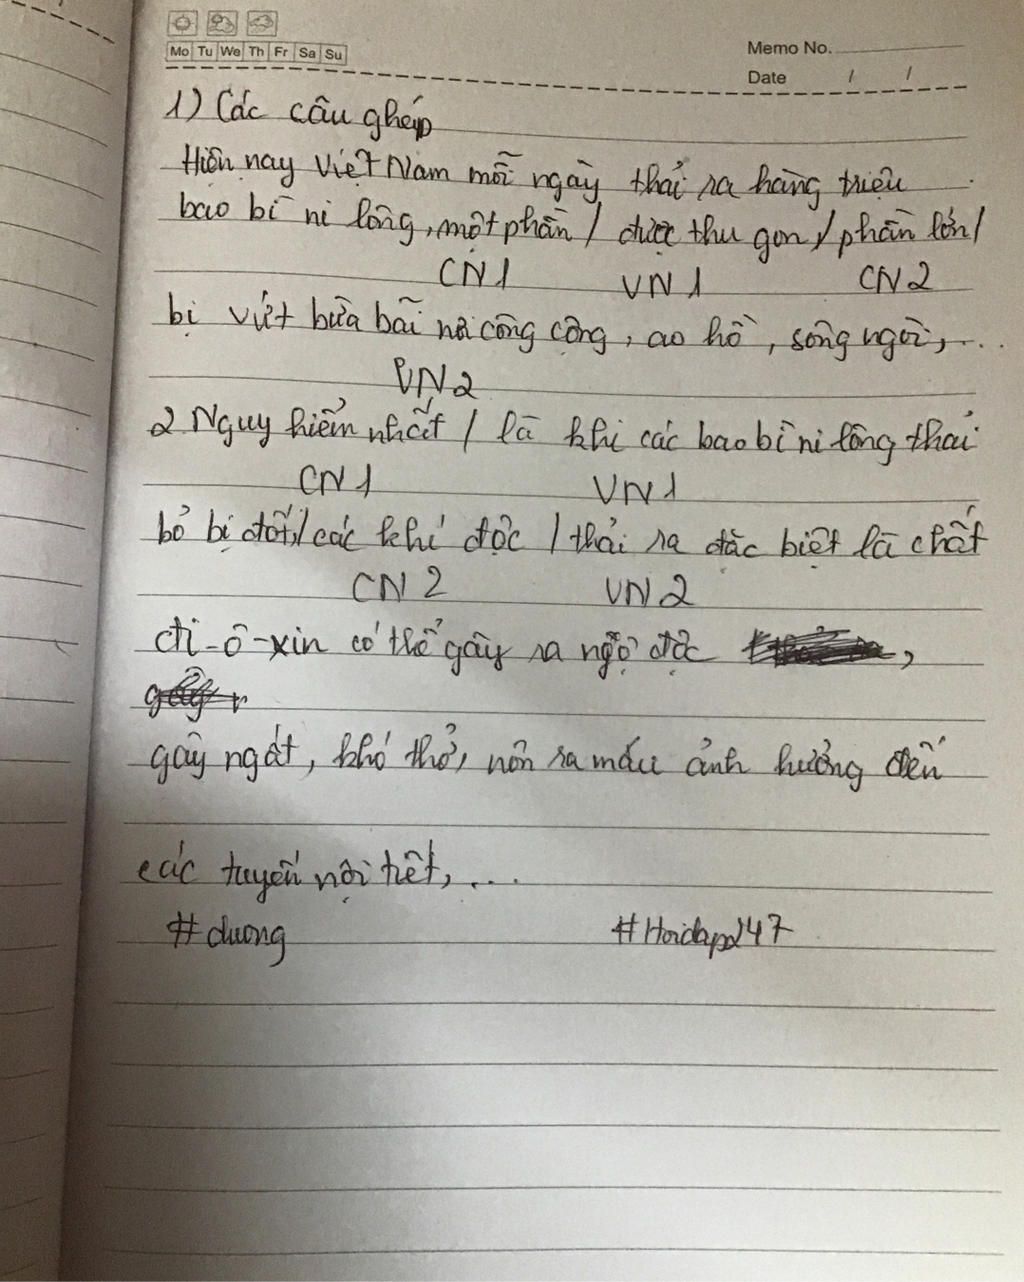 Mo Tu We Th Fr Sa Su
Memo No.
Date / /
1) Các câu ghép
Hiện nay Việt Nam mỗi ngày thải ra hàng triệu
bao bì ni lông, một phần / được thu gon, / phần lớn /
CN1 VN1 CN2
bị vứt bừa bãi nơi công cộng, ao hồ, sông ngòi,...
VN2
2 Nguy hiểm nhất / là khi các bao bì ni lông thải
CN1 VN1
bỏ bị đốt, / các khí độc / thải ra đặc biệt là chất
CN2 VN2
đi-ô-xin có thể gây ra ngộ độc ,
gây ngất, khó thở, nôn ra máu ảnh hưởng đến
các tuyến nội tiết,...
#duong #Hoidap247